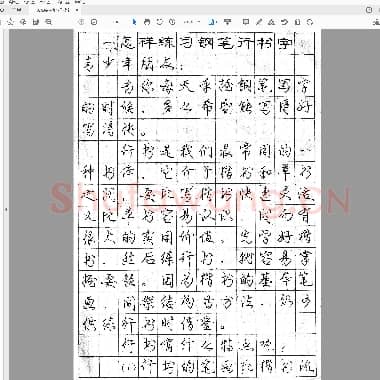 怎样练习钢笔行书字
青少年朋友:
当你每天拿起钢笔写字
的时候,多么希望能写得好
写得快。
行书是我们最常用的一
种书体,它介于楷书和草书
之间,要比楷书快速灵活,
又比草书容易认识,因而有
很大的实用价值。先学好楷
书,然后练行书,就容易掌
握要领。因为楷书的基本笔
画、间架结构方法,
供练行书时借鉴。
行书有什么特点呢?
(1)行书的笔画比楷书流
Shufawang.CN